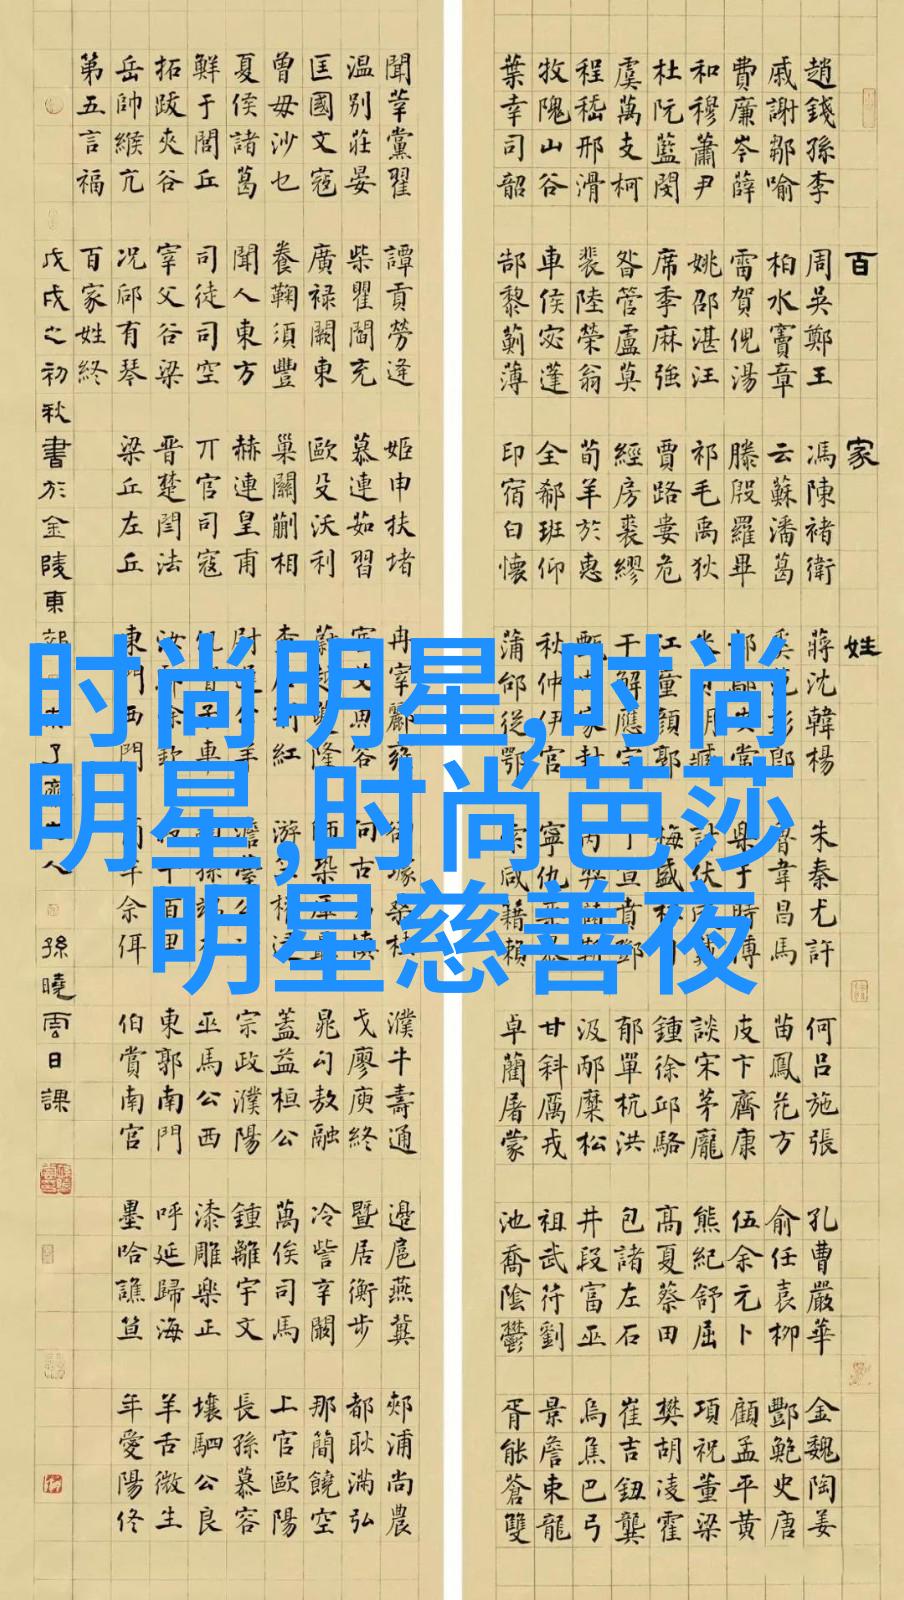 百家姓
趙錢孫李周吳鄭王馮陳褚衛蔣沈韓楊朱秦尤許何呂施張孔曹嚴華金魏陶姜
戚謝鄒喻柏水竇章云蘇潘葛魯韋昌馬苗鳳花方俞任袁柳酆鮑史唐
費廉岑薛雷賀倪湯滕殷羅畢皮卞齊康伍余元卜顧孟平黃
和穆蕭尹姚邵湛汪祁毛禹狄談宋茅龐熊紀舒屈項祝董梁
杜阮藍閔席季麻強賈路婁危江童顏郭鍾徐邱駱高夏蔡田樊胡凌霍
虞萬支柯昝管盧莫經房裘繆干解應宗郁單杭洪包諸左石崔吉鈕龔
程嵇邢滑裴陸榮翁荀羊於惠汲邴糜松井段富巫烏焦巴弓
牧隗山谷車侯宓蓬全郗班仰秋仲伊宮甘鈄厲戎祖武符劉景詹束龍
葉幸司韶郜黎薊薄印宿白懷蒲邰從鄂咸籍賴卓藺屠蒙池喬陰鬱胥能蒼雙
聞莘黨翟譚貢勞逄姬申扶堵冉宰酈桂濮牛壽通邊扈燕冀郟浦尚農
温別莊晏柴瞿閻充慕連茹習戈廖庾終暨居衡步都耿滿弘
匡國文寇廣祿闕東歐殳沃利隆晁勾敖融冷訾辛闞那簡饒空
曾毋沙乜養鞠須豐巢關蒯相紅游蓋益桓公萬俟司馬上官歐陽
夏侯諸葛聞人東方赫連皇甫宗政濮陽鍾離宇文長孫慕容
鮮于閭丘司徒司空丌官司寇車巫馬公西漆雕樂正壤駟公良
拓跋夾谷宰父谷梁晉楚閆法百里東郭南門呼延歸海羊舌微生
岳帥緱亢况郈有琴梁丘左丘東門西門牟佘佴伯賞南宮墨哈譙笪年愛陽佟
第五言福百家姓終
戊戌之初秋書於金陵東人孫曉雲日課
时尚明星,时尚
明星,时尚芭莎
明星慈善夜